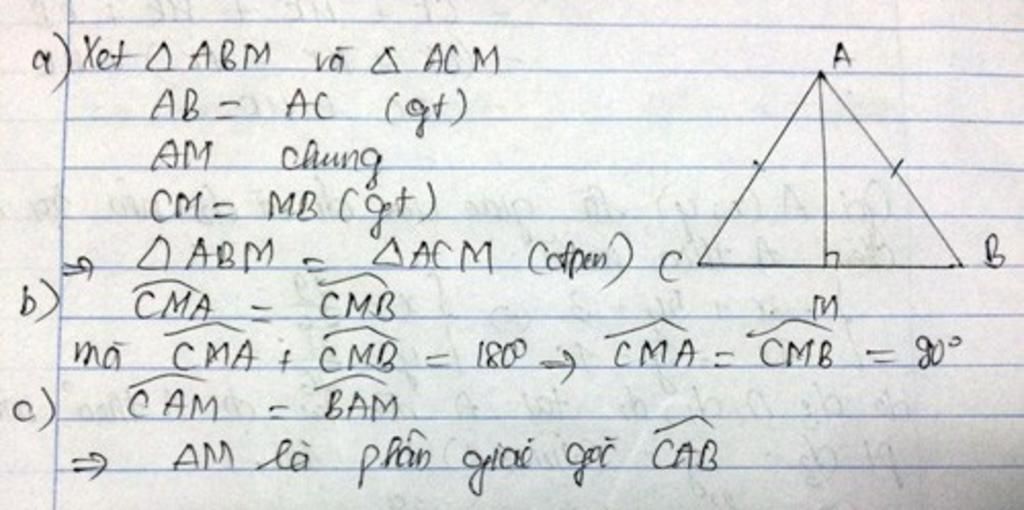 a) Xet Δ ABM và Δ ACM
AB = AC (gt)
AM chung
CM = MB (gt)
⇒ Δ ABM = Δ ACM
b) \widehat{CMA} = \widehat{CMB}
mà \widehat{CMA} + \widehat{CMB} = 180° ⇒ \widehat{CMA} = \widehat{CMB} = 90°
c) \widehat{CAM} = \widehat{BAM}
⇒ AM là phân giác góc \widehat{CAB}
A
C
B
M